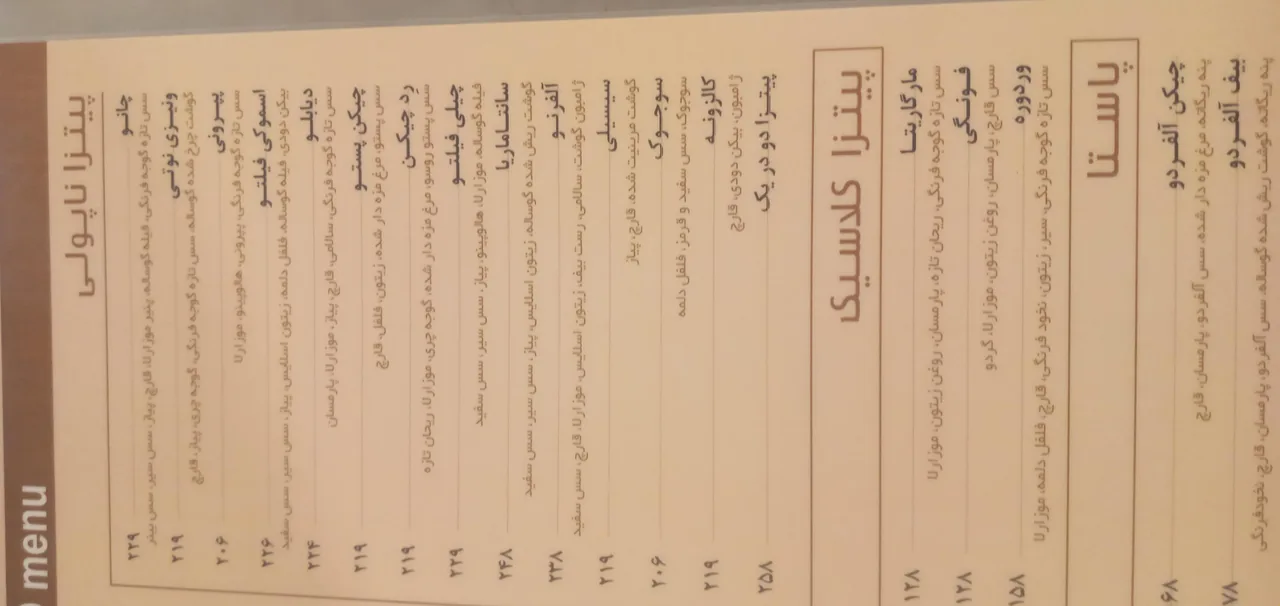 menu
پیتزا ناپولی
چانو ۲۲۹
سس تازه گوجه فرنگی، فیله گوساله، پنیر موزارلا، قارچ، پیاز، سس سیر، سس پینر
ونیزی نوتی ۲۱۹
گوشت چرخ شده گوساله، سس تازه گوجه فرنگی، گوجه چری، پیاز، قارچ
پپرونی ۲۰۶
سس تازه گوجه فرنگی، پپرونی، هالوپینو، موزارلا
اسموکی فیلتو ۲۲۶
بیکن دودی، فیله گوساله، فلفل دلمه، زیتون اسلایس، پیاز، سس سیر، سس سفید
دیابلو ۲۲۴
سس تازه گوجه فرنگی، سالامی، قارچ، پیاز، موزارلا، پارمسان
چیکن پستو ۲۱۹
سس پستو، مرغ مزه دار شده، زیتون، فلفل، قارچ
رد چیکن ۲۱۹
سس پستو روسو، مرغ مزه دار شده، گوجه چری، موزارلا، ریحان تازه
چیلی فیلتو ۲۲۹
فیله گوساله، موزارلا، هالوپینو، پیاز، سس سیر، سس سفید
سانتاماریا ۲۴۸
گوشت ریش شده گوساله، زیتون اسلایس، پیاز، سس سیر، سس سفید
آلفرنو ۲۳۸
ژامبون گوشت، سالامی، رست بیف، زیتون اسلایس، موزارلا، قارچ، سس سفید
سیسیلی ۲۱۹
گوشت مرینیت شده، قارچ، پیاز
سوجوک ۲۰۶
سوجوک، سس سفید و قرمز، فلفل دلمه
کالزونه ۲۱۹
ژامبون، بیکن دودی، قارچ
پیتزا دو در یک ۲۵۸
پیتزا کلاسیک
مارگاریتا ۱۲۸
سس تازه گوجه فرنگی، ریحان تازه، پارمسان، روغن زیتون، موزارلا
فونگی ۱۲۸
سس قارچ، پارمسان، روغن زیتون، موزارلا، گردو
وردوره ۱۵۸
سس تازه گوجه فرنگی، سیر، زیتون، نخود فرنگی، قارچ، فلفل دلمه، موزارلا
پاستا
چیکن آلفردو ۶۸
پنه ریگاته، مرغ مزه دار شده، سس آلفردو، پارمسان، قارچ
بیف آلفردو ۷۸
پنه ریگاته، گوشت ریش شده گوساله، سس آلفردو، پارمسان، قارچ، نخودفرنگی